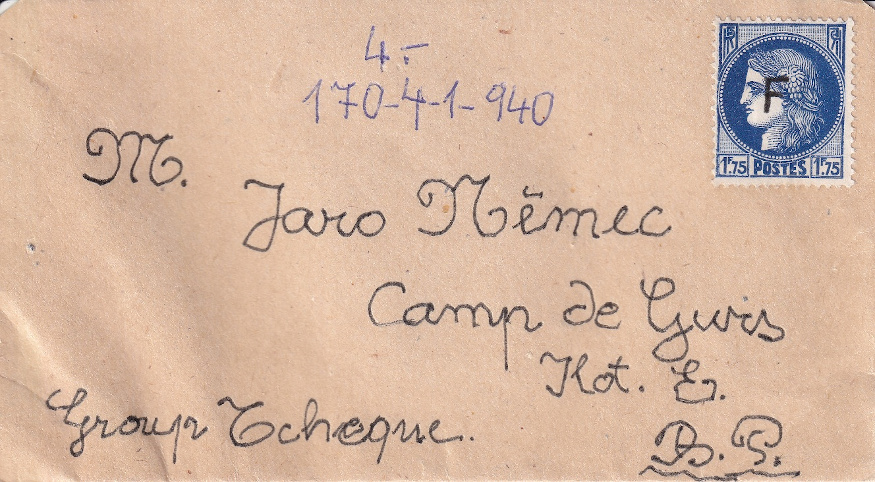 4.-
170-4-1-940
F
1F75 POSTES 1F75
M.
Jaro Němec
Camp de Gurs
Ilot. E.
Group Tcheque.
B. P.